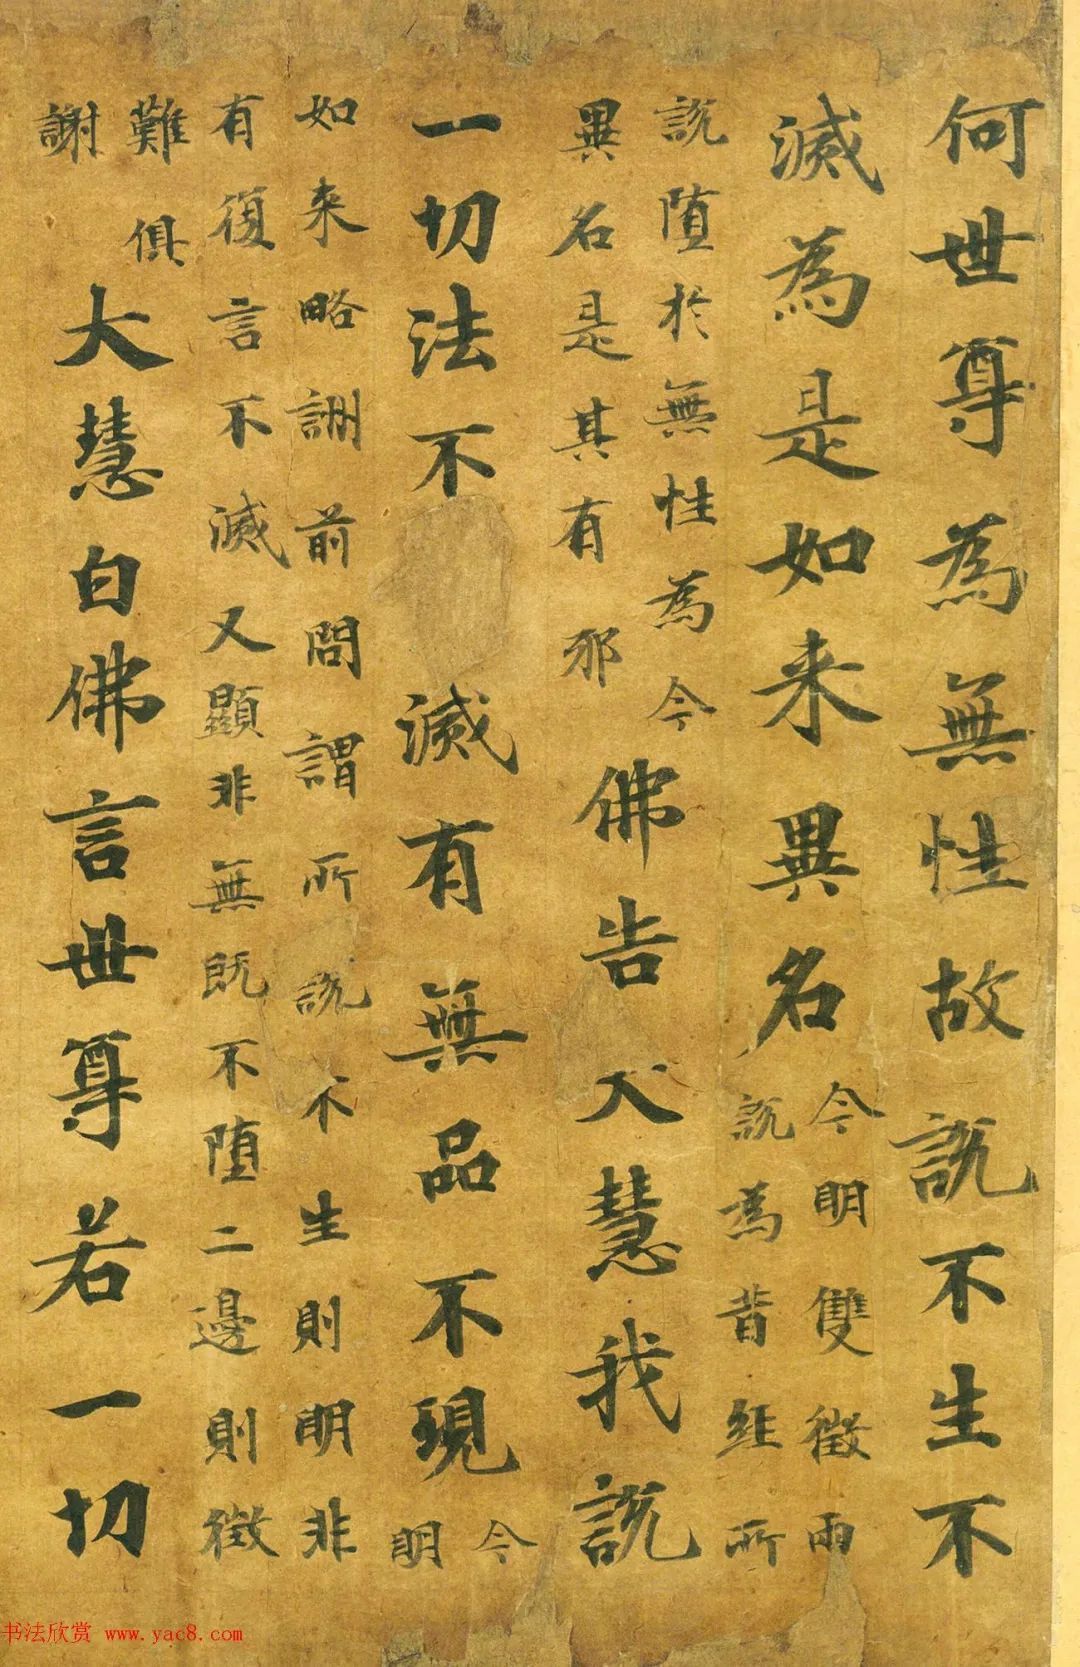 何世尊為無性故說不生不
滅為是如来異名
今明雙徵雨
說為昔經所
說堕於無性為今
異名是其有邪
佛告大慧我說
一切法不滅有無品不現
今
明
如来略詶前問謂所說不生則明非
有復言不滅又顯非無既不堕二邊則徵
難俱
謝
大慧白佛言世尊若一切
书法欣赏 www.yac8.com